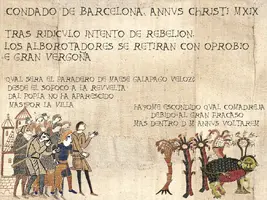 CONDADO DE BARCELONA. ANNVS CHRISTI MXIX
TRAS RIDICVLO INTENTO DE REBELION,
LOS ALBOROTADORES SE RETIRAN CON OPROBIO
E GRAN VERGOÑA
QVAL SERA EL PARADERO DE MAESE GALAPAGO VELOZ?
DESDE EL SOFOCO A LA REVVELTA
DAL POPVLA NO HA APARESCIDO
MAS POR LA VILLA
HAYOME ESCONDIDO QVAL COMADREJA
DEBIDO AL GRAN FRACASO
MAS DENTRO D M ANNVS VOLTAREM